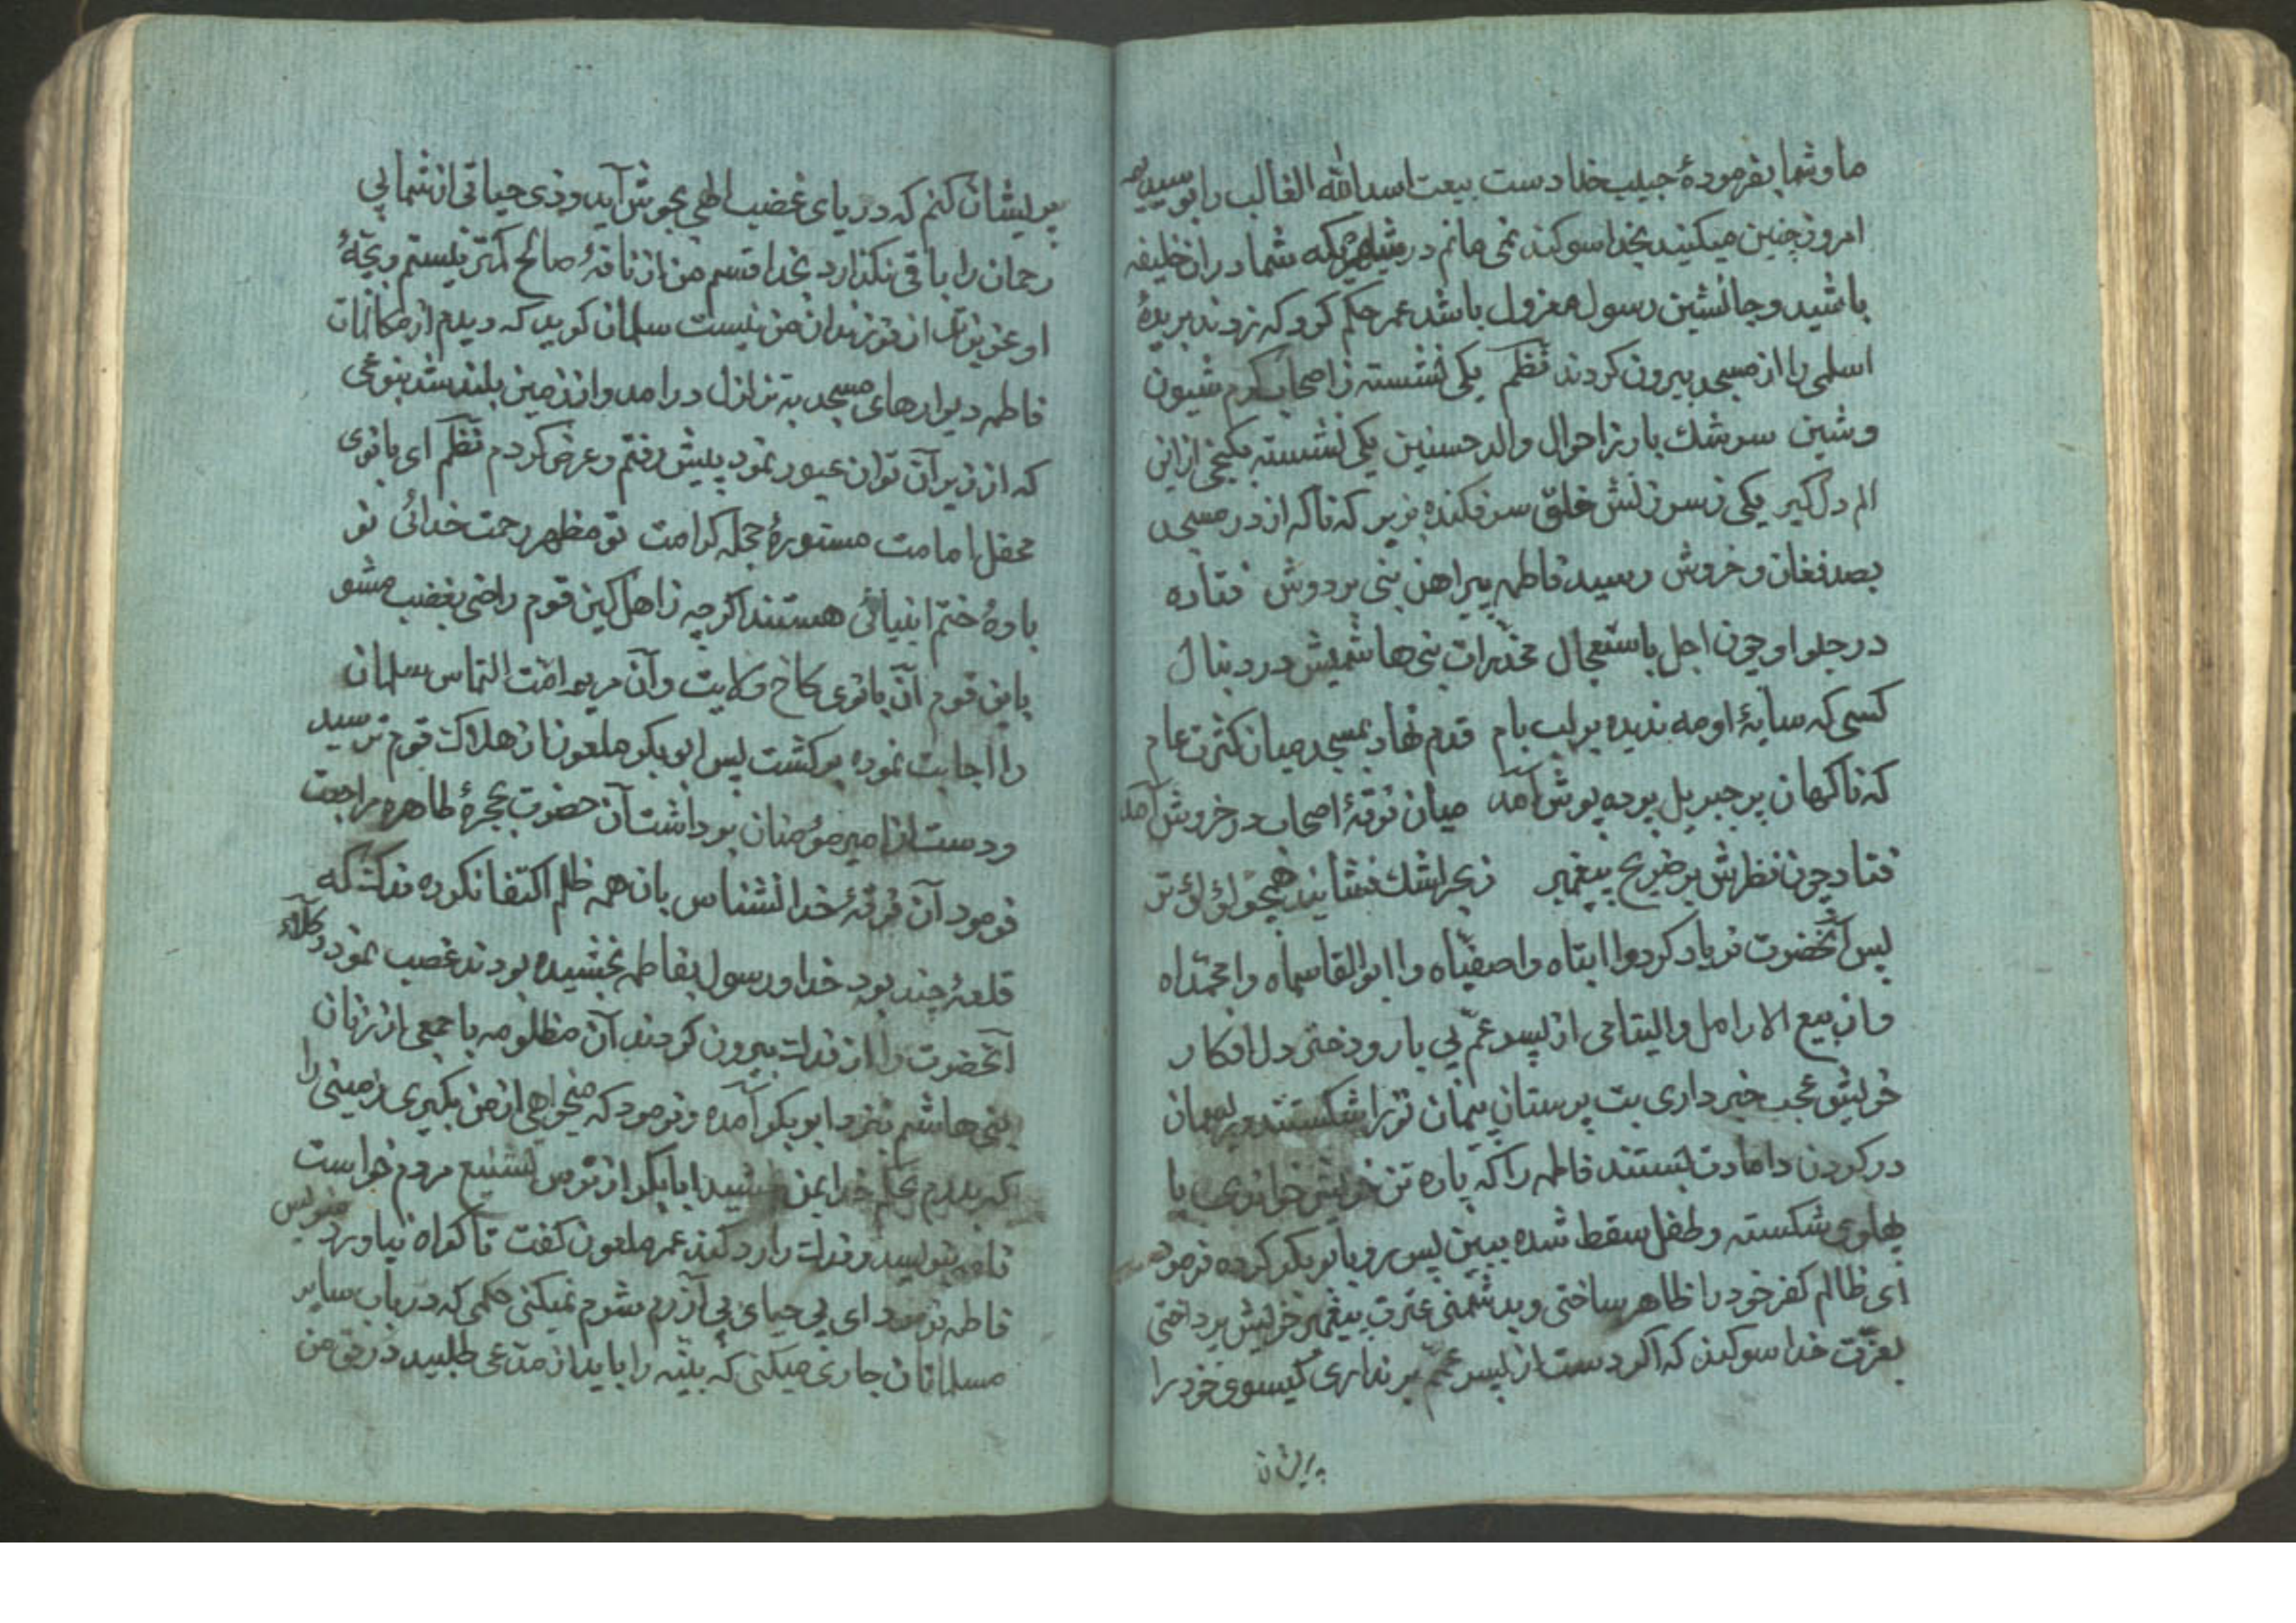 ما و شما بفرمودهٔ حبیب خدا دست بیعت اسدالله الغالب را بوسیدیم
امروز چنین میکنید بخدا سوکند نمی مانم در شهریکه شما در ان خلیفه
باشید و جانشین رسول معزول باشد عمر حکم کرد که زدند بریدهٔ
اسلمی را از مسجد بیرون کردند نظم یکی نشسته ز اصحاب کرم شیون
و شین سرشك بار ز احوال والد حسنین یکی نشسته بکنجی ازاین
الم دلکیر یکی ز سرزنش خلق سر فکنده بزیر که ناکه از در مسجد
بصد فغان و خروش رسید فاطمه پیراهن نبی بر دوش فتاده
در جلو او چون اجل باستعجال مخدّرات بنی هاشمیش در دنبال
کسی که سایهٔ او مه ندیده بر لب بام قدم نهاد بمسجد میان کثرت عام
که ناکهان پر جبریل پرده پوش آمد میان فرقهٔ اصحاب در خروش آمد
فتاد چون نظرش بر ضریح پیغمبر ز بحر اشك فشانید همچو لؤلؤ تر
پس آنحضرت فریاد کرد وا ابتاه وا صفیّاه وا ابوالقاسماه وا محمّداه
وا ربیع الارامل والیتامی از پسر عمّ بی یار و دختر دل افکار
خویش عجب خبر داری بت پرستان پیمان تو را شکستند و ریسمان
در کردن دامادت بستند فاطمه را که پاره تن خویش خواندی با
پهلوی شکسته و طفل سقط شده ببین پس رو بابوبکر کرده فرمود
ای ظالم کفر خود را ظاهر ساختی و بدشمنی عترت پیغمبر خویش پرداختی
بعزّت خدا سوکند که اکر دست از پسر عمّم بر نداری کیسوی خود را
پریشان
پریشان کنم که دریای غضب الهی بجوش آید و ذی حیاتی از شما بی
رحمان را باقی نکذارد بخدا قسم من از ناقهٔ صالح کمتر نیستم و بچّهٔ
او عزیزتر از فرزندان من نیست سلمان کوید که دیدم از مکالمات
فاطمه دیوارهای مسجد به تزلزل درامد و از زمین بلند شد بنوعی
که از زیر آن توان عبور نمود پیش رفتم و عرض کردم نظم ای بانوی
محفل امامت مستورهٔ حجله کرامت تو مظهر رحمت خدائی تو
بادهٔ ختم انبیائی هستند اکرچه ز اهل کین قوم راضی بغضب مشو
باین قوم آن بانوی کاخ ولایت و آن مریم امّت التماس سلمان
را اجابت نموده برکشت پس ابوبکر ملعون از هلاکت قوم ترسید
و دست از امیر مؤمنان برداشت آن حضرت بحجرهٔ طاهره مراجعت
فرمود آن فرقهٔ خدا نشناس بان همه ظلم اکتفا نکرده فدک که
قلعهٔ چند بود خدا و رسول بفاطمه بخشیده بودند غصب نمود وکلاء
آنحضرت را از فدک بیرون کردند آن مظلومه با جمعی از زنان
بنی هاشم بنزد ابوبکر آمده و فرمود که میخواهی از من بکیری زمینی را
که پدرم بحکم خدا بمن بخشید ابابکر از ترس تشنیع مردم خواست
نامه بنویسد و فدک را رد کند عمر ملعون کفت تا کواه نیاورد منویس
فاطمه فرمود ای بی حیای بی آزرم شرم نمیکنی حکمی که در باب سایر
مسلمانان جاری میکنی که بیّنه را باید از مدّعی طلبید در حق من